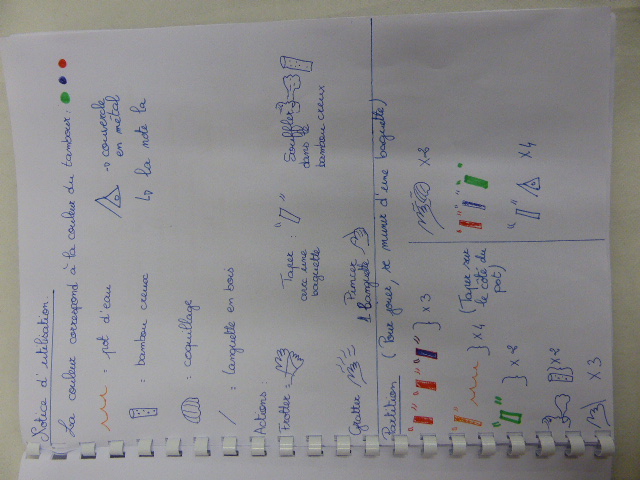 Notice d'utilisation.
La couleur correspond à la couleur du tambour.
= pot d'eau
→ couvercle
en métal
= bambou creux
↳ la note la
= coquillage
= languette en bois
Actions:
Frotter =
Taper :
avec une
baguette
Souffler
dans le
bambou creux
Gratter
Pincer
languette
Partition (Pour jouer, se munir d'une baguette)
} x 3
} x 4 (Taper sur
le côté du
pot)
} x 2
} x 2
x 3
x 2
x 4